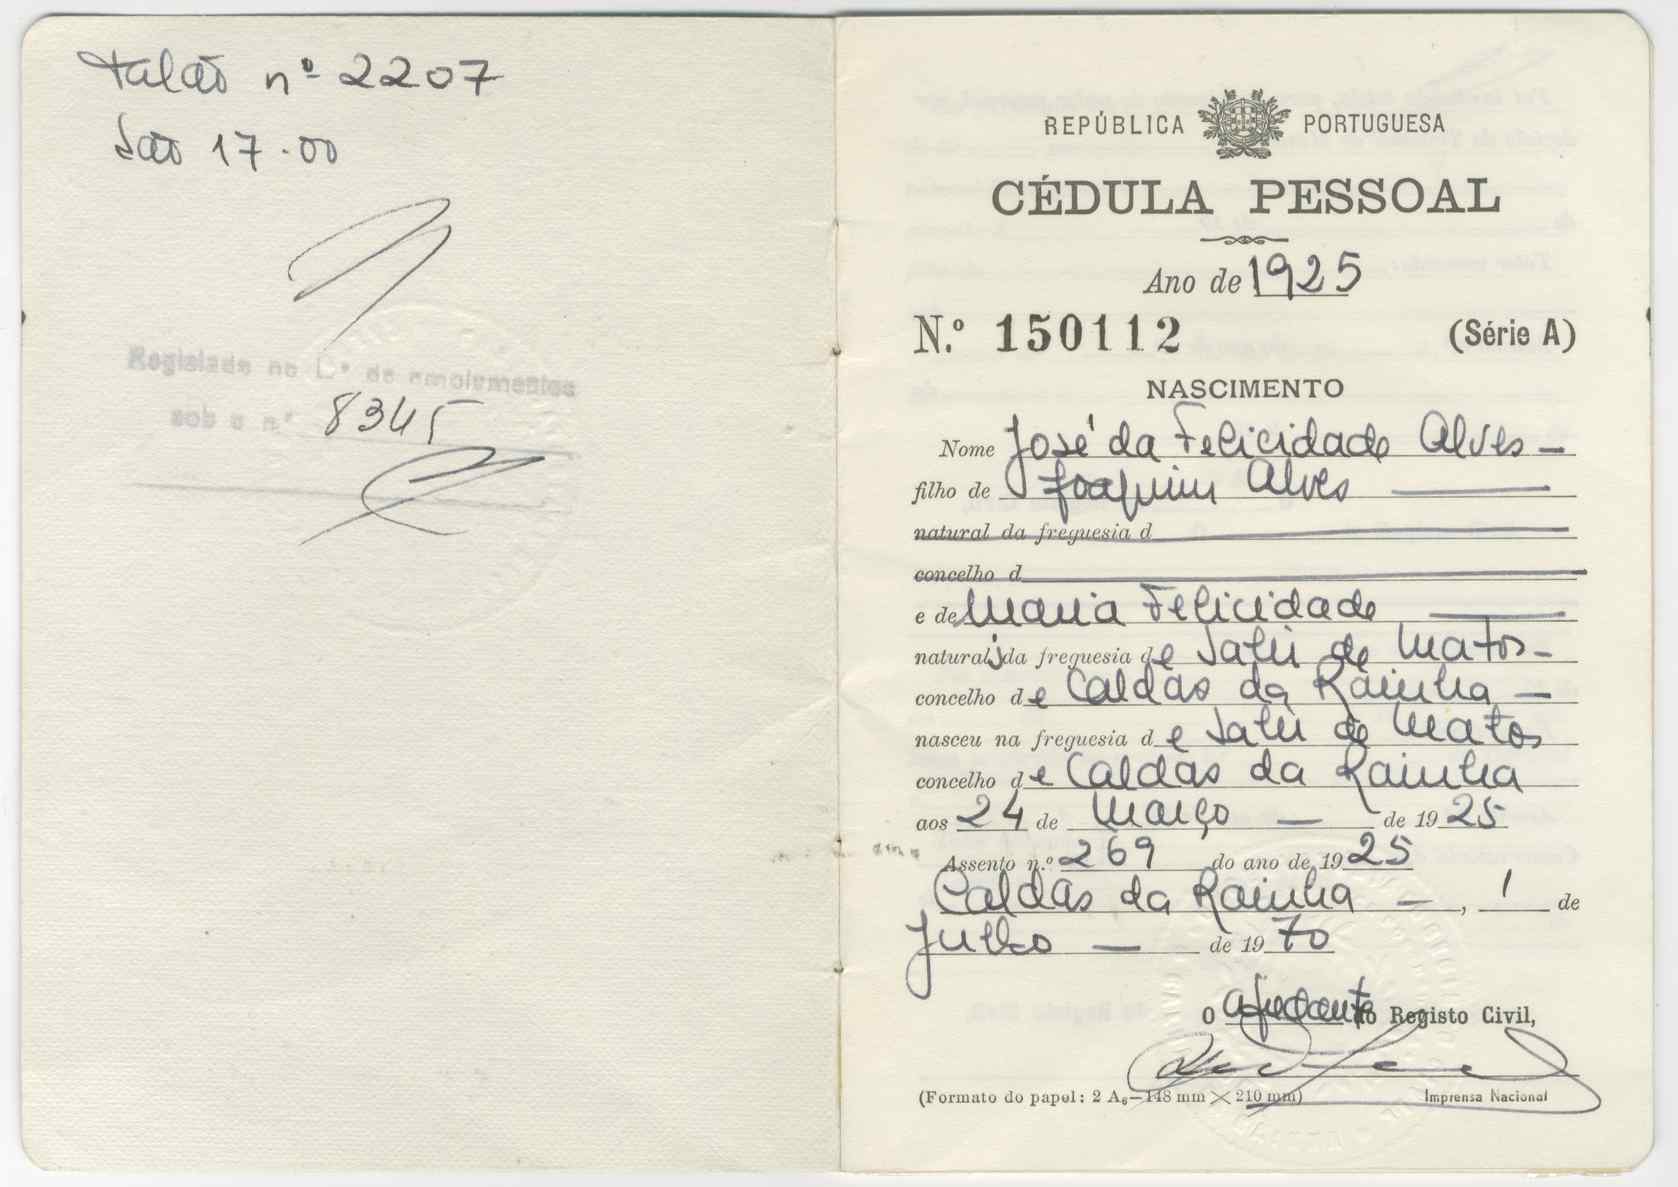 Talão nº 2207
São 17.00
Registado no L.º de emolumentos
sob o n.º 8345
REPÚBLICA PORTUGUESA
CÉDULA PESSOAL
Ano de 1925
N.º 150112 (Série A)
NASCIMENTO
Nome José da Felicidade Alves —
filho de Joaquim Alves —
natural da freguesia d
concelho d
e de Maria Felicidade —
natural da freguesia de Salir de Matos -
concelho de Caldas da Rainha —
nasceu na freguesia de Salir de Matos
concelho de Caldas da Rainha
aos 24 de Março — de 1925
Assento n.º 269 do ano de 1925
Caldas da Rainha —, 1 de
Julho — de 1970
O Ajudante do Registo Civil,
(Formato do papel: 2 A₆—148 mm × 210 mm) Imprensa Nacional